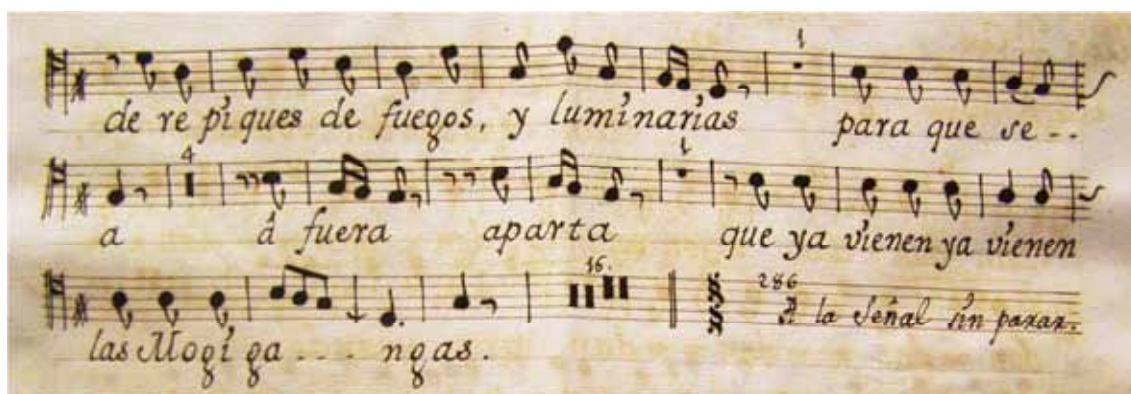 1 1
de repiques de fuegos, y luminarias para que se--
4 1
a â fuera aparta que ya vienen ya vienen
16. 286
A la Señal sin parar.
las Mogiga--- ngas.